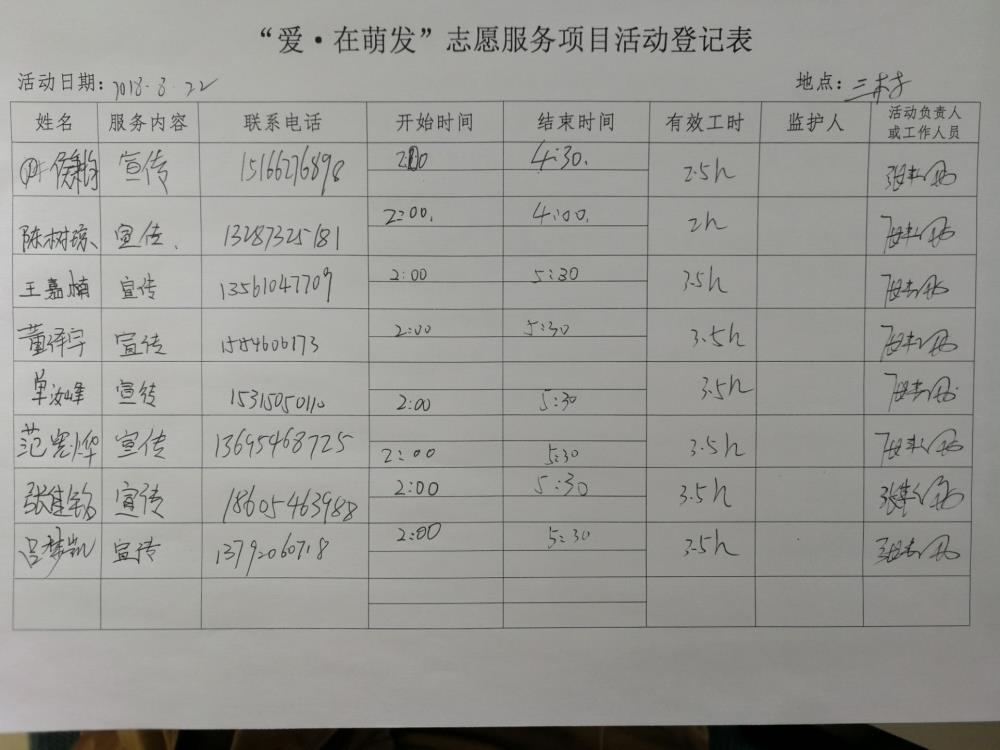 “爱·在萌发”志愿服务项目活动登记表
活动日期：2018.8.22 地点：三村
姓名 服务内容 联系电话 开始时间 结束时间 有效工时 监护人 活动负责人或工作人员
宣传 15166276898 2:00 4:30. 2.5h
陈树琼、 宣传、 13287325181 2:00. 4:00. 2h
王嘉楠 宣传 13561047709 2:00 5:30 3.5h
董泽宇 宣传 2:00 5:30 3.5h
单汝峰 宣传 15315050110 2:00 5:30 3.5h
范 宣传 13695468725 2:00 5:30 3.5h
张佳铭 宣传 18605463988 2:00 5:30 3.5h
吕梦凯 宣传 13792060718 2:00 5:30 3.5h